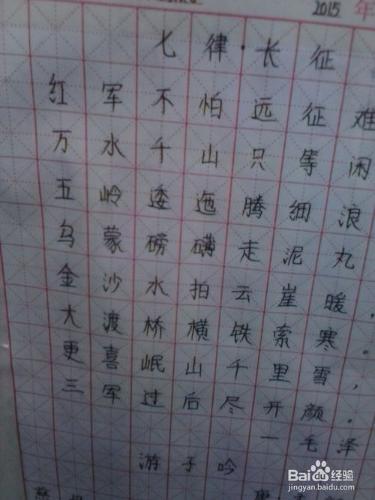 2015 年
七律·长征
红军不怕远征难
万水千山只等闲
五岭逶迤腾细浪
乌蒙磅礴走泥丸
金沙水拍云崖暖,
大渡桥横铁索寒.
更喜岷山千里雪,
三军过后尽开颜.
一毛泽
游子吟
Baidu 经验
jingyan.baidu.com